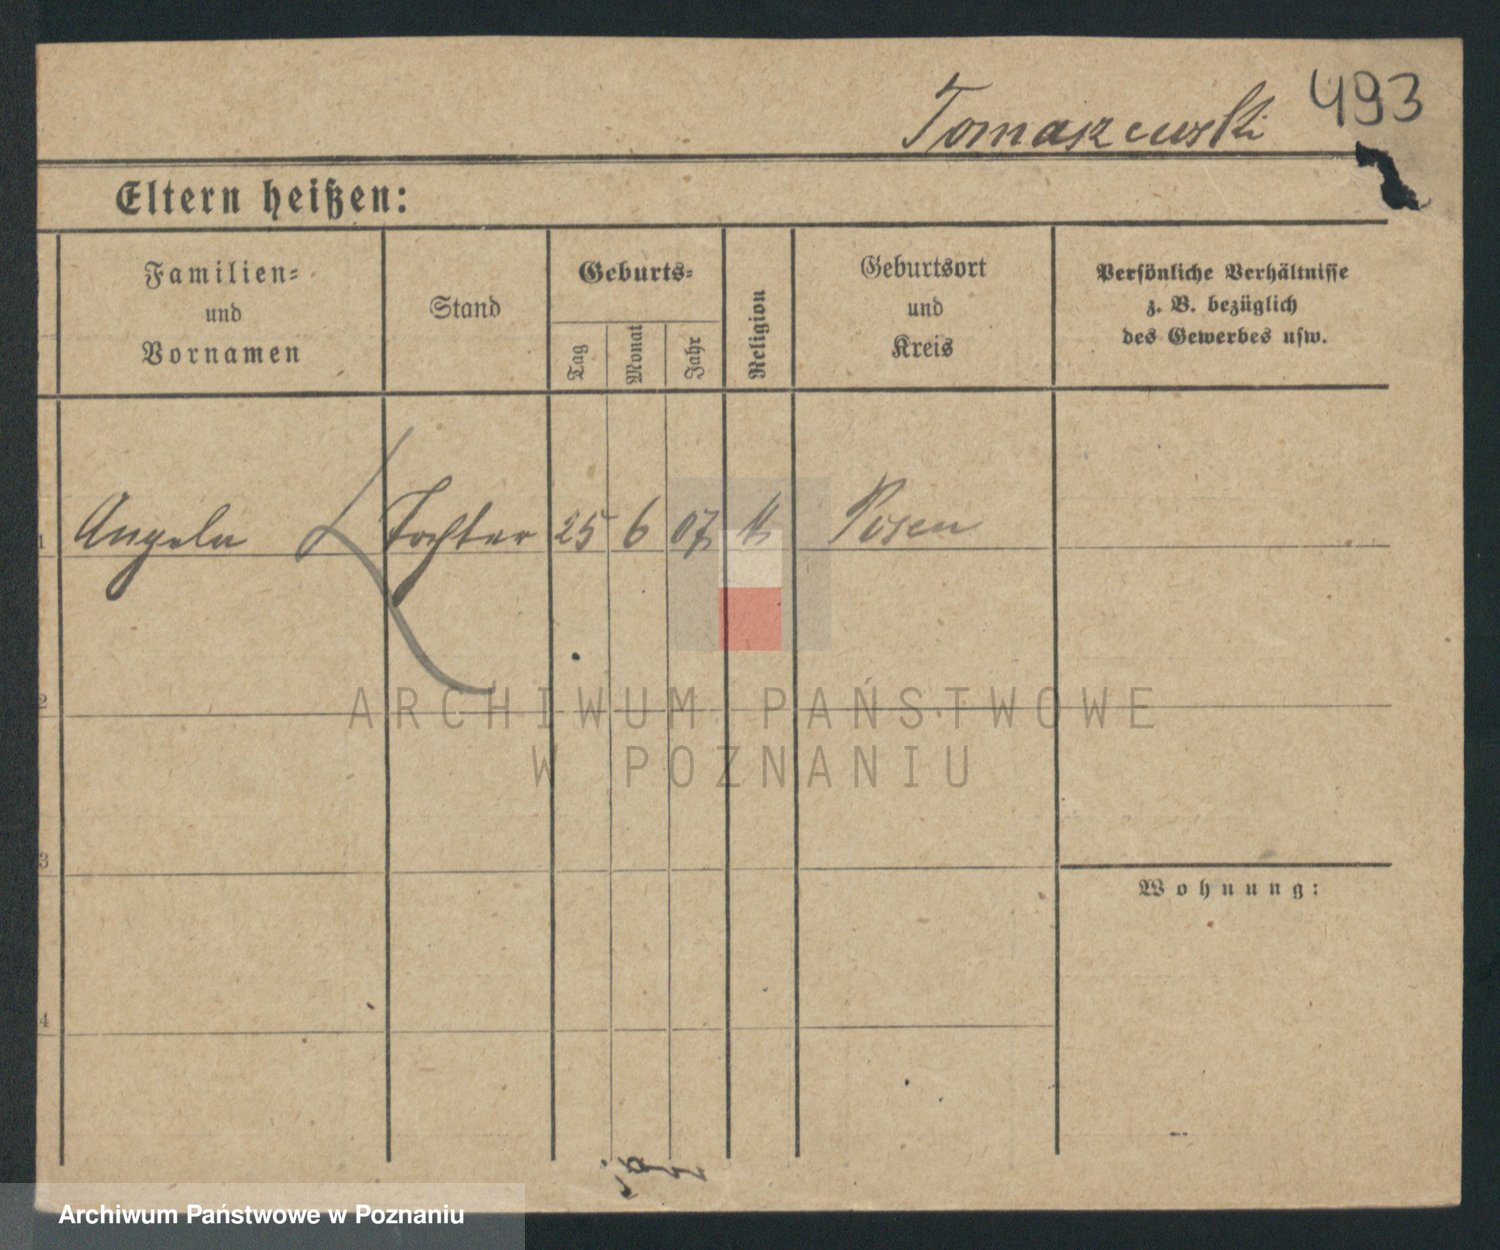 493
Tomaszewski
Eltern heißen:
Familien-
und
Vornamen
Stand
Geburts-
Tag
Monat
Jahr
Religion
Geburtsort
und
Kreis
Persönliche Verhältnisse
z. B. bezüglich
des Gewerbes usw.
1 Angela Tochter 25 6 07 k Posen
2
3
4
Wohnung:
ARCHIWUM PAŃSTWOWE
W POZNANIU
Archiwum Państwowe w Poznaniu